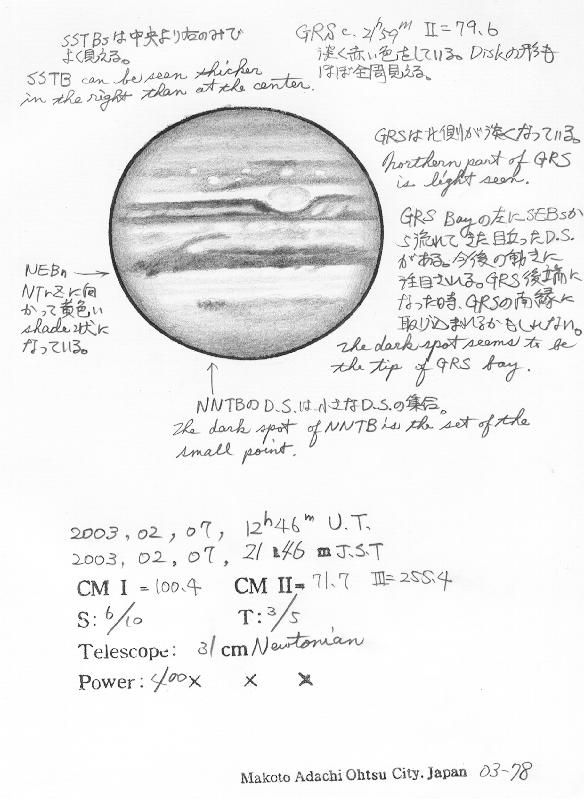 SSTBsは中央より右のみで
よく見える。
SSTB can be seen thicker
in the right than at the center.
GRS c. 21h59m II=79.6
淡く赤い色をしている。Diskの形も
ほぼ全周見える。
GRSは北側が淡くなっている。
Northern part of GRS
is light seen.
GRS Bayの左にSEBsか
ら流れてきた目立ったD.S.
がある。今後の動きに
注目される。GRS後端に
なった時、GRSの南縁に
取り込まれるかもしれない。
The dark spot seems to be
the tip of GRS bay.
NEBn →
NTrZに向
かって黄色い
shade状に
なっている。
↑
NNTBのD.S.は小さなD.S.の集合。
The dark spot of NNTB is the set of the
small point.
2003, 02, 07, 12h46m U.T.
2003, 02, 07, 21h46m J.S.T
CM I = 100.4 CM II= 71.7 III= 255.4
S: 6/10 T: 3/5
Telescope: 31 cm Newtonian
Power: 400× × ×
Makoto Adachi Ohtsu City. Japan 03-78